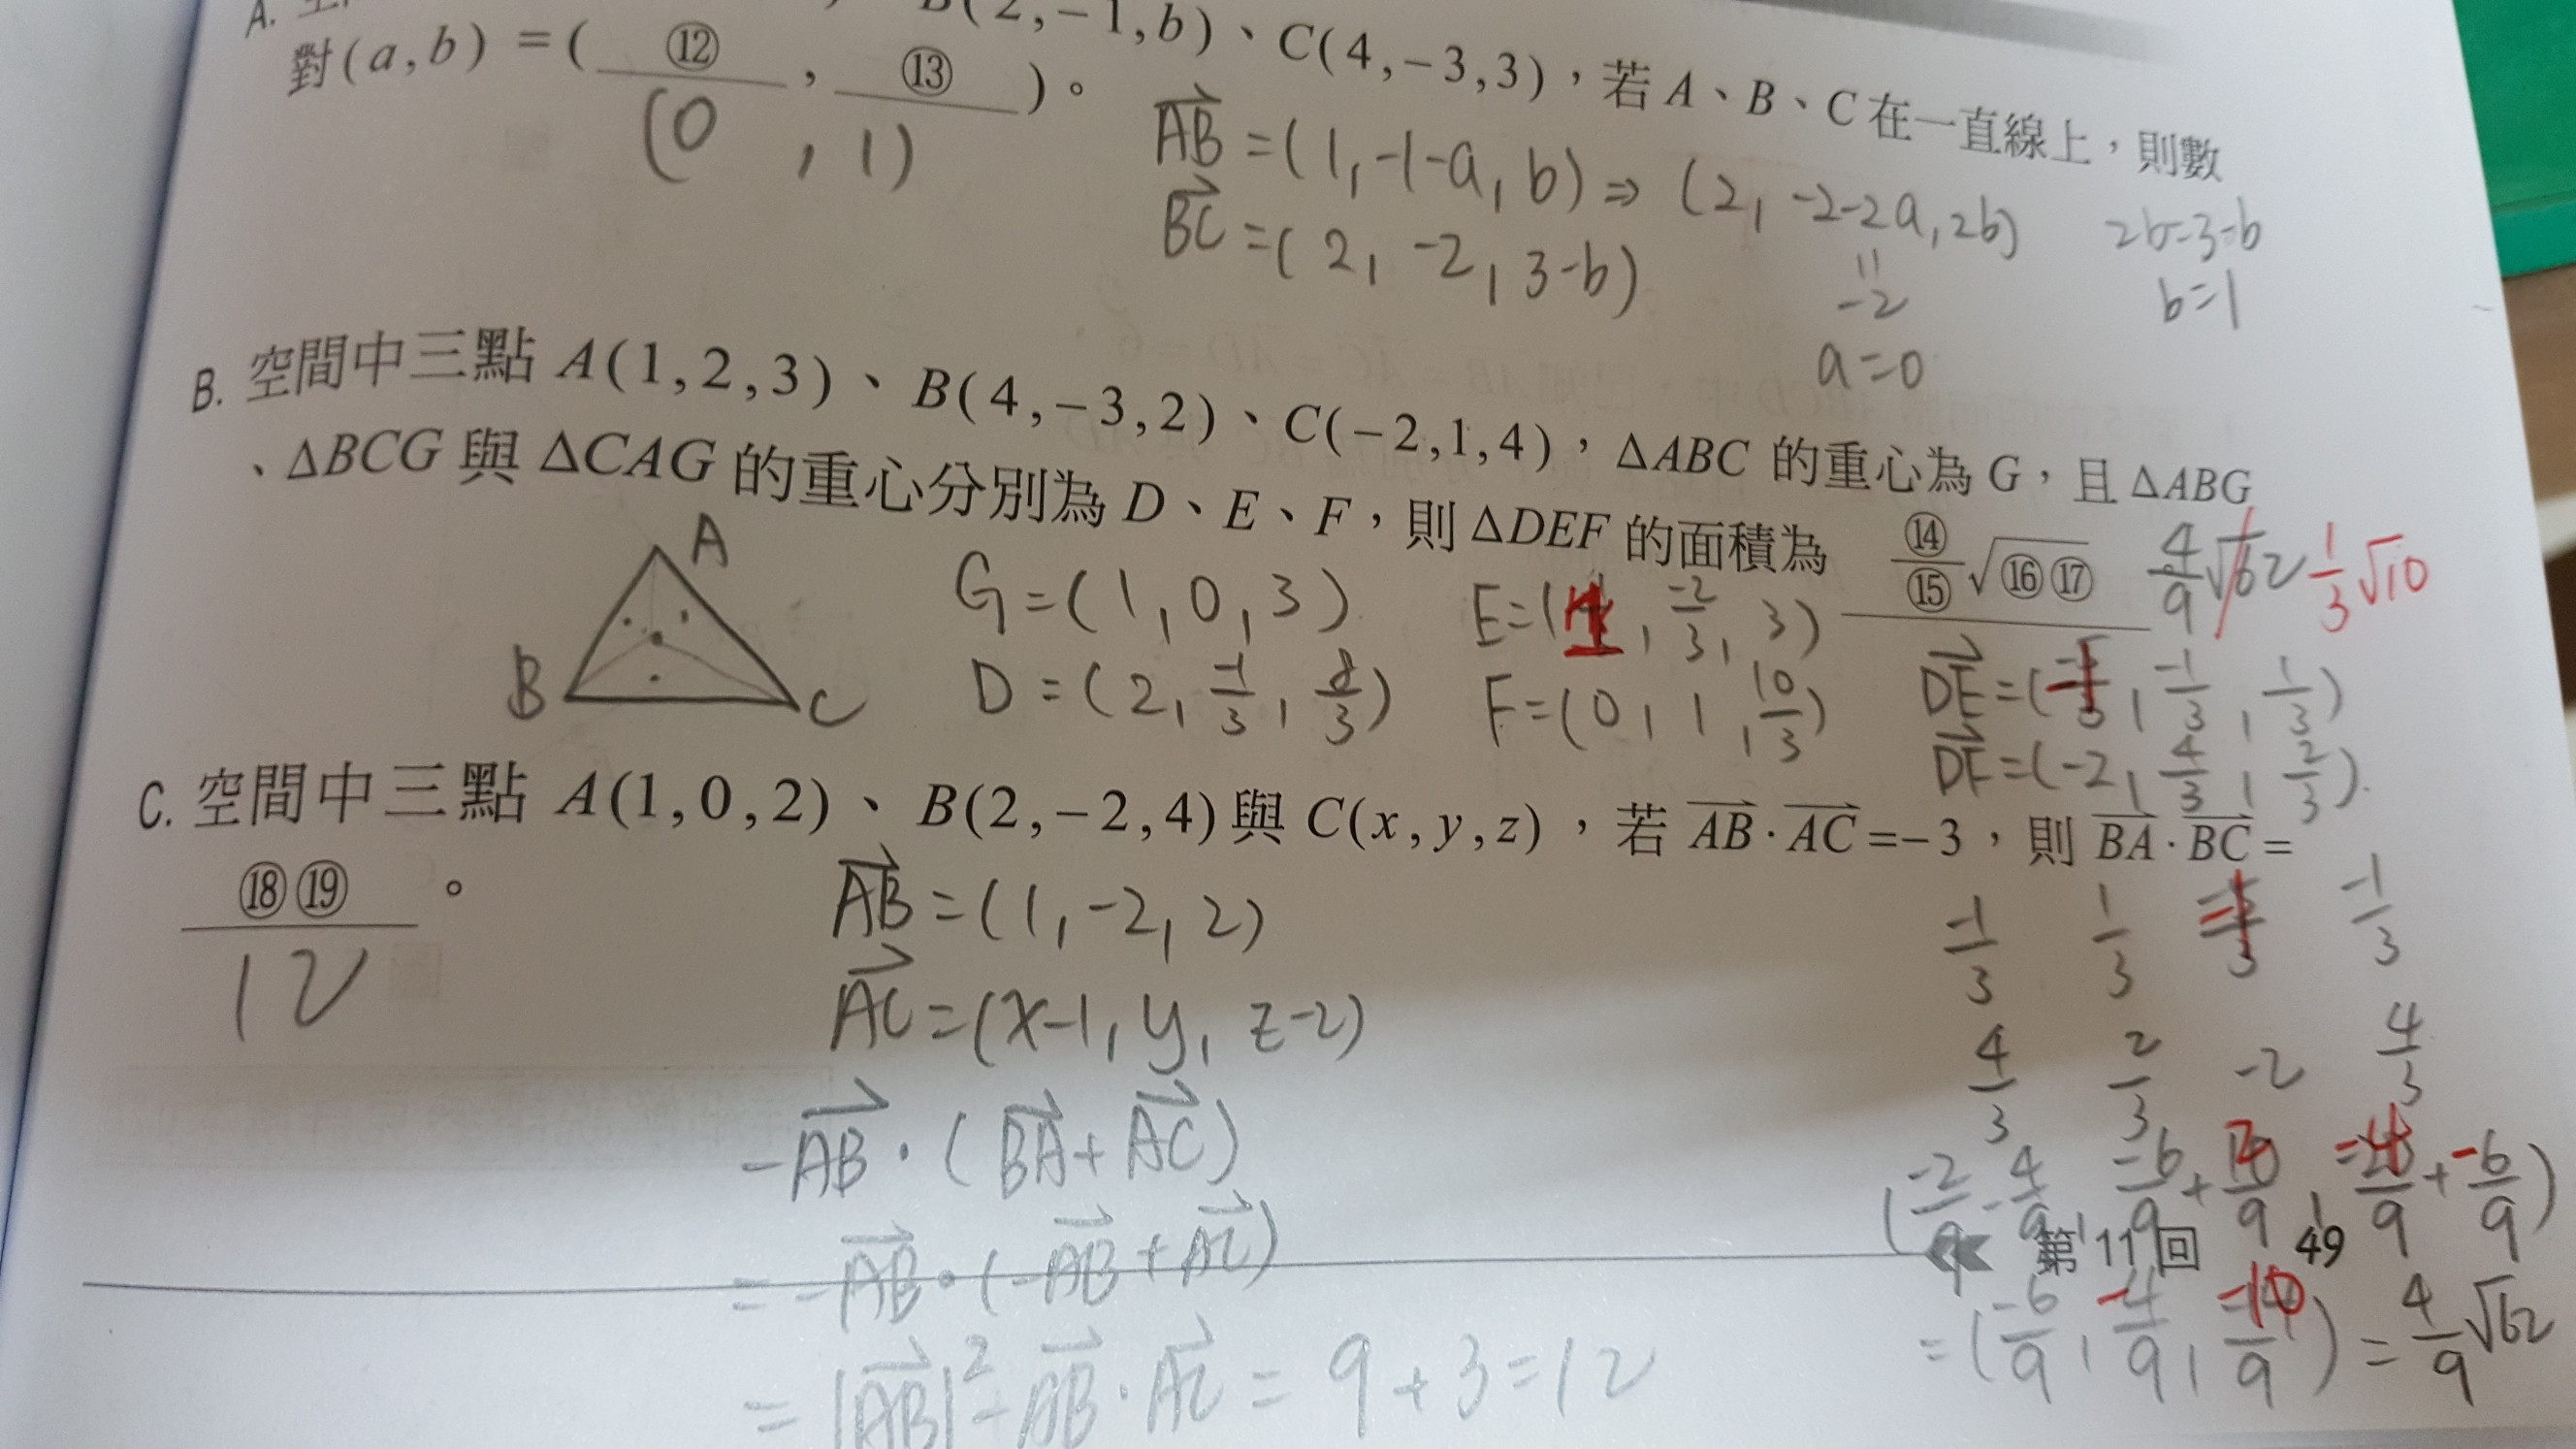 A.
B(2,-1,b)、C(4,-3,3),若A、B、C在一直線上,則數
對(a,b)=( ⑫ , ⑬ )。
(0 , 1)
AB=(1,-1-a,b)⇒(2,-2-2a,2b)
BC=(2,-2,3-b)
=
-2
a=0
2b=3-b
b=1
B. 空間中三點A(1,2,3)、B(4,-3,2)、C(-2,1,4),ΔABC的重心為G,且ΔABG
、ΔBCG與ΔCAG的重心分別為D、E、F,則ΔDEF的面積為 ⑭/⑮√⑯⑰
4/9√62 1/3√10
A
B
C
G=(1,0,3)
D=(2,-1/3,8/3)
E=(1,-2/3,3)
F=(0,1,10/3)
DE=( ,-1/3,1/3)
DF=(-2,4/3,2/3).
C. 空間中三點A(1,0,2)、B(2,-2,4)與C(x,y,z),若AB·AC=-3,則BA·BC=
⑱⑲ 。
12
AB=(1,-2,2)
AC=(x-1,y,z-2)
-AB·(BA+AC)
=-AB·(-AB+AC)
=|AB|²-AB·AC=9+3=12
-1/3 1/3 -1/3
4/3 2/3 -2 4/3
(-2/9-4/9, -6/9+ /9, /9+-6/9)
=(-6/9,-4/9,-10/9)=4/9√62
第11回 49